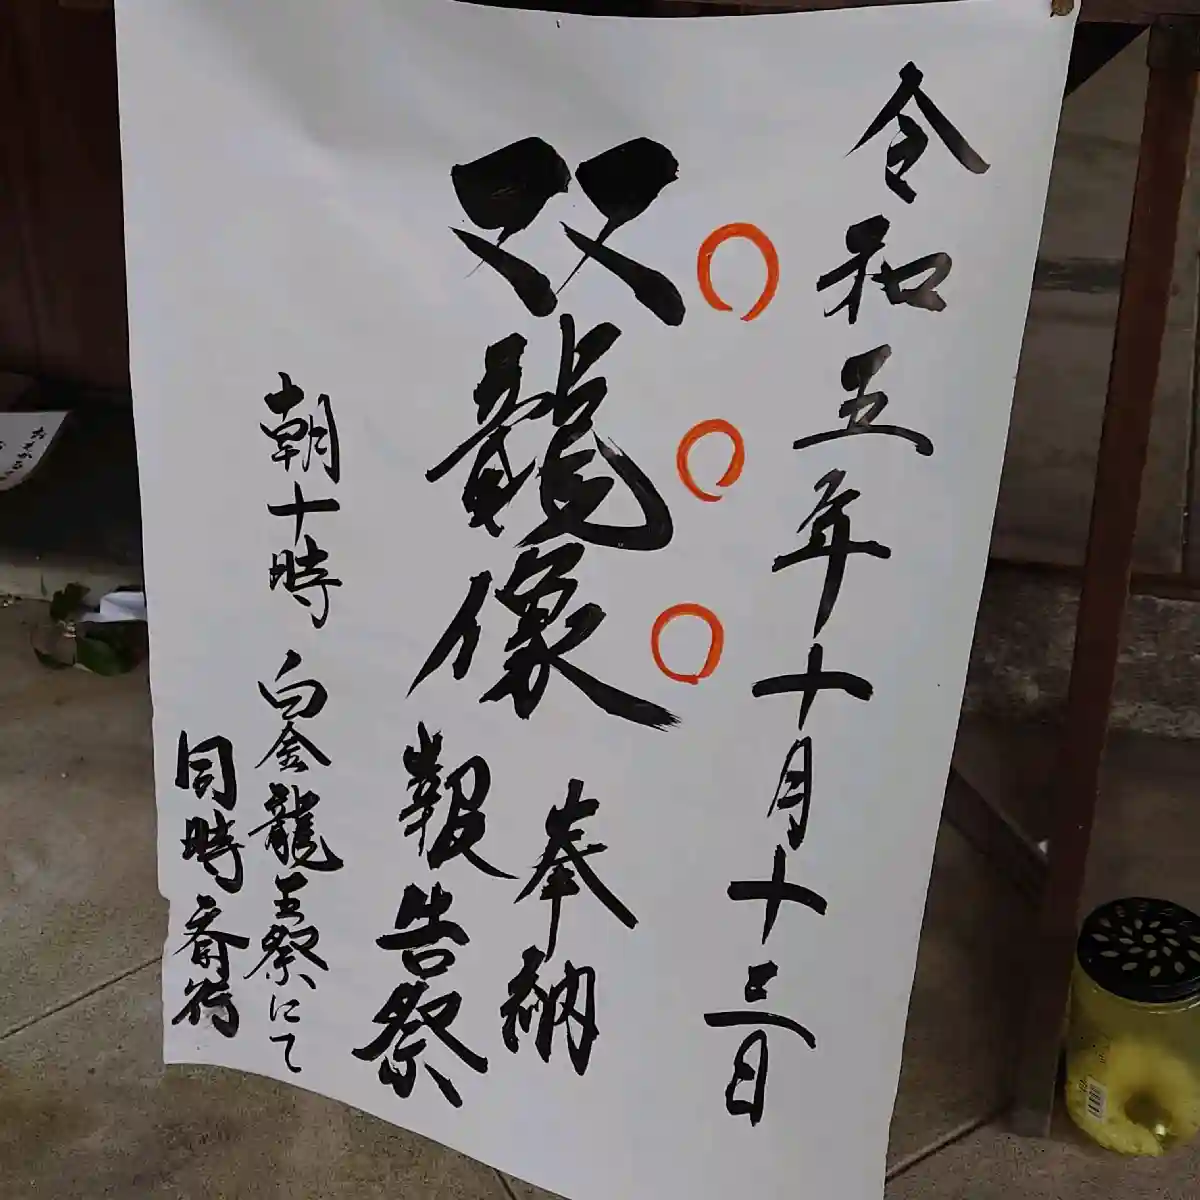 令和五年十月十三日
双龍像
奉納
報告祭
朝十時 白金龍王祭にて
同時斎行